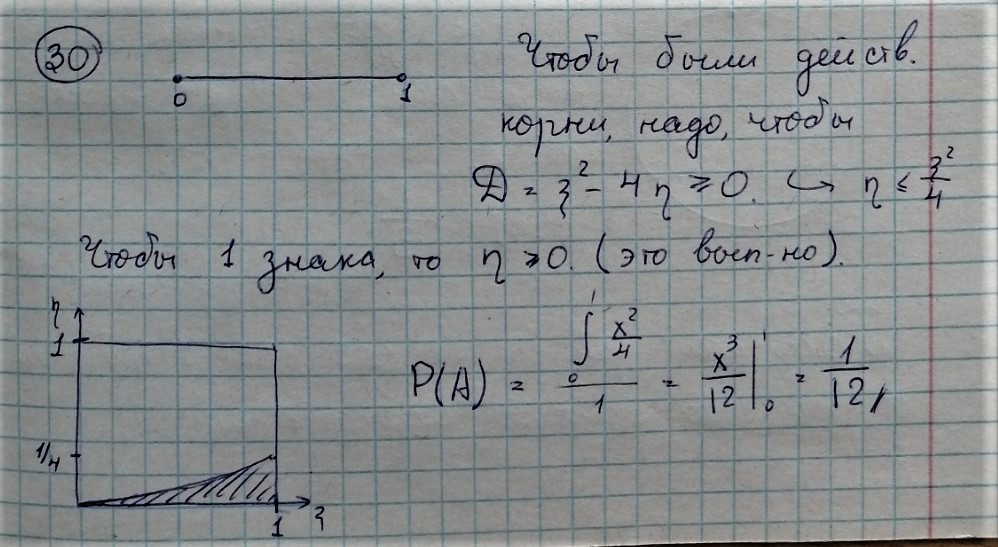 30
0 1
Чтобы были действ.
корни, надо, чтобы
D = ξ² - 4η ≥ 0. ↪ η ≤ ξ²/4
Чтобы 1 знака, то η ≥ 0. (это вып-но).
η
1
1/4
1 ξ
P(A) = (∫₀¹ x²/4)/1 = x³/12 |₀¹ = 1/12